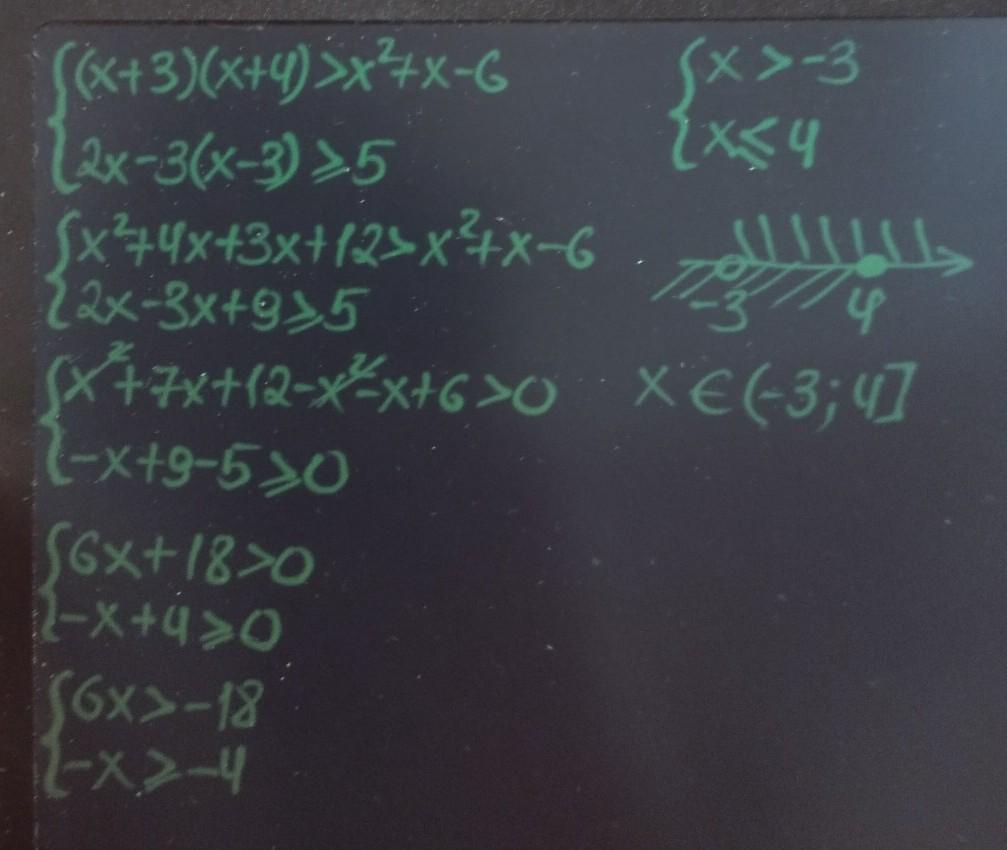 (x+3)(x+4)>x²+x-6
2x-3(x-3)⩾5
x²+4x+3x+12>x²+x-6
2x-3x+9⩾5
x²+7x+12-x²-x+6>0
-x+9-5⩾0
6x+18>0
-x+4⩾0
6x>-18
-x⩾-4
x>-3
x⩽4
-3 4
x∈(-3;4]